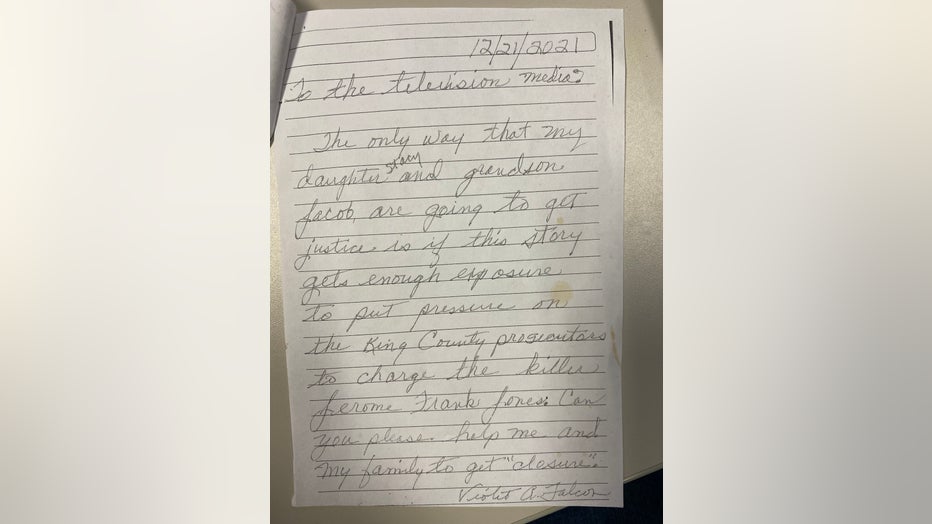 12/21/2021
To the television media:
The only way that my
daughter Stacy and grandson
Jacob, are going to get
justice is if this story
gets enough exposure
to put pressure on
the King County prosecutors
to charge the killer
Jerome Frank Jones. Can
you please help me and
my family to get "closure".
A. Falcon